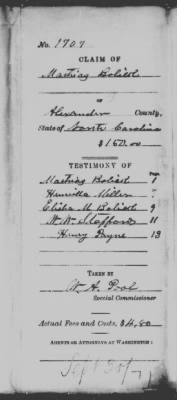 No. 1707
CLAIM OF
Mathias Bolick
OF
Alexander County,
State of North Carolina
$150.00
TESTIMONY OF
Mathias Bolick 1
Henrietta Miller 7
Elisha M. Bolick 9
W. W. Stafford 11
Henry Payne 13
TAKEN BY
W. H. Pool
Special Commissioner
Actual Fees and Costs, $4.80
AGENTS OR ATTORNEYS AT WASHINGTON:
Sept 30/71